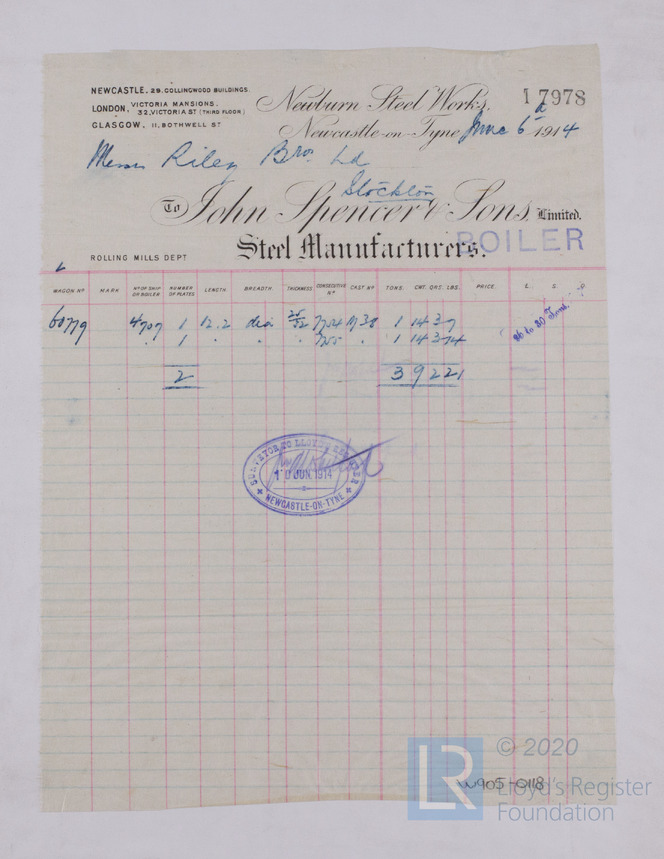 NEWCASTLE. 29. COLLINGWOOD BUILDINGS.
LONDON. VICTORIA MANSIONS.
32, VICTORIA ST (THIRD FLOOR)
GLASGOW. 11, BOTHWELL ST
Newburn Steel Works,
17978
Newcastle-on-Tyne June 6th 1914
Messrs Riley Bros Ld
Stockton
To John Spencer & Sons, Limited.
Steel Manufacturers.
BOILER
ROLLING MILLS DEPT
WAGON No MARK No OF SHIP OR BOILER NUMBER OF PLATES LENGTH BREADTH. THICKNESS CONSECUTIVE No CAST No TONS. CWT. QRS. LBS. PRICE £. S. D
60779 4707 1 12.2 dia 1 14 3 7
1 " 1 14 3 14
2 3 9 2 21
26 to 30 Tons.
SURVEYOR TO LLOYD'S REGISTER
10 JUN. 1914
NEWCASTLE-ON-TYNE
W905-0118
LR © 2020
Lloyd's Register
Foundation